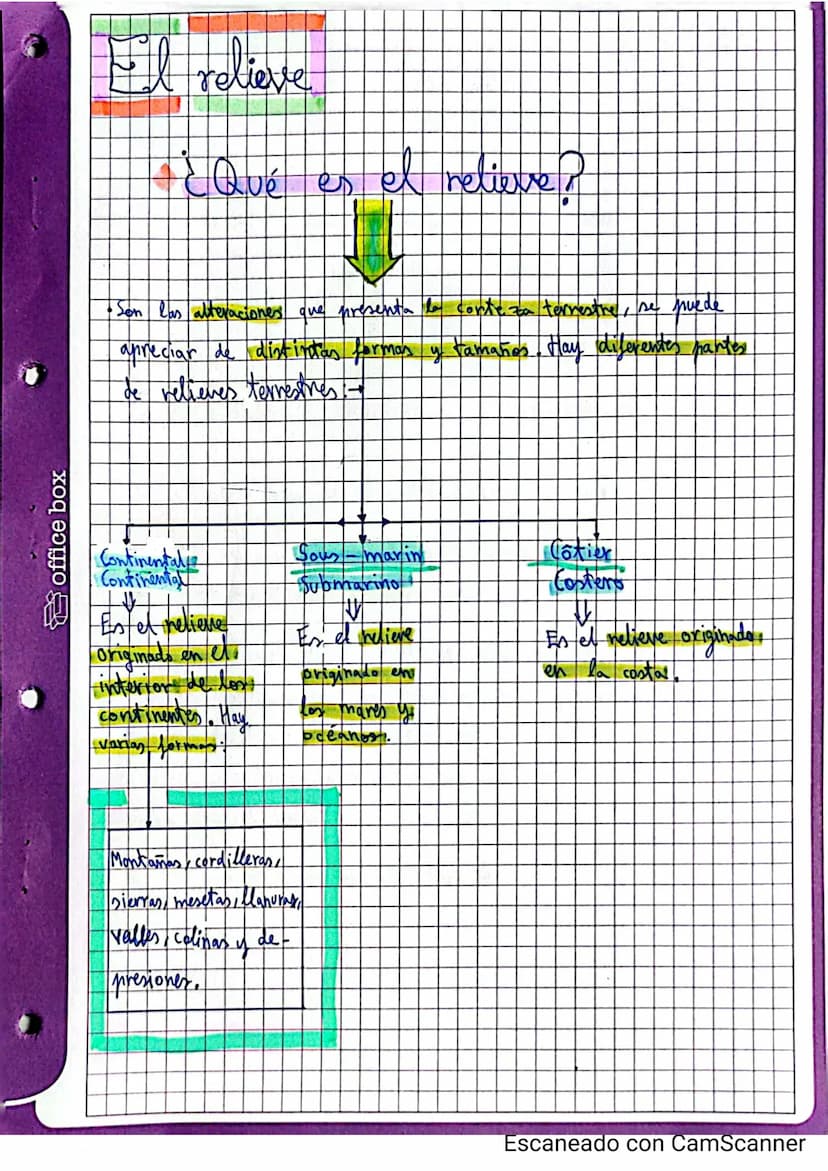 El relieve
¿Qué es el relieve?
• Son las alteraciones que presenta la corteza terrestre, se puede
apreciar de distintas formas y tamaños. Hay diferentes partes
de relieves terrestres:→
office box
Continental:
Continental
Es el relieve
originado en el
interior de los
continentes. Hay
varias formas:
Sous-marin
Submarino
Es el relieve
originado en
los mares y
océanos.
Côtier
Costero
Es el relieve originado
en la costa.
Montañas, cordilleras,
sierras, mesetas, llanuras,
valles, colinas y de-
presiones.
Escaneado con CamScanner